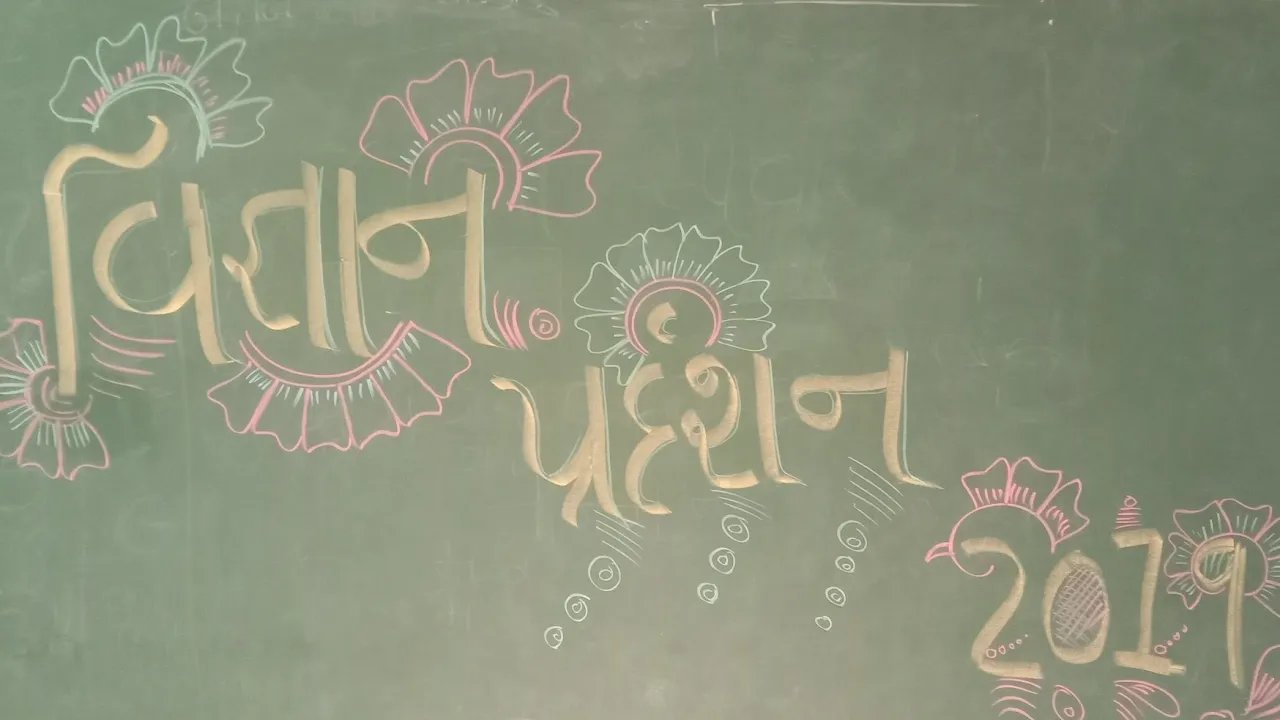 વિજ્ઞાન
પ્રદર્શન
2019